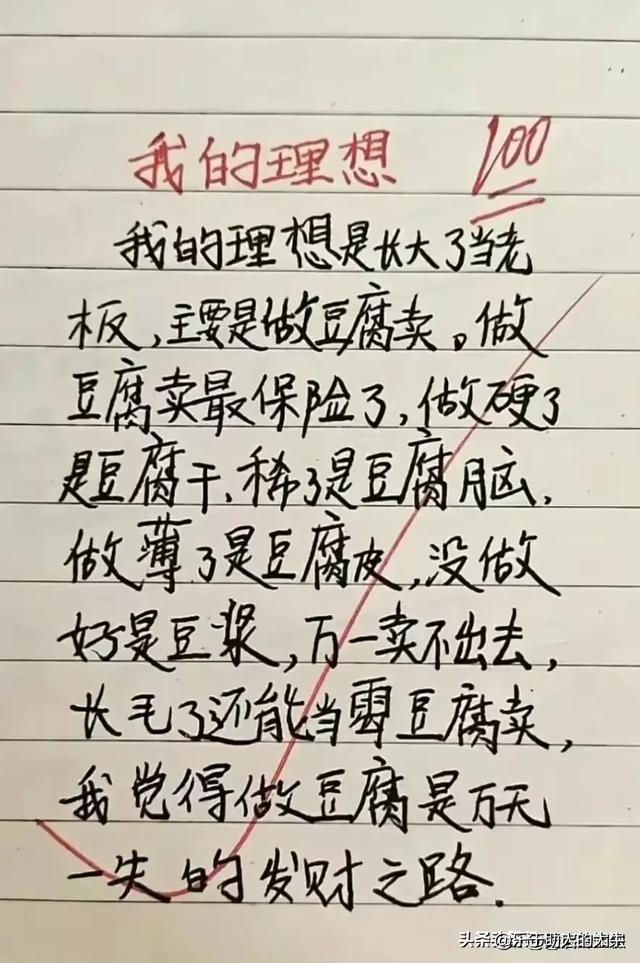 我的理想 100
我的理想是长大了当老
板,主要是做豆腐卖。做
豆腐卖最保险了,做硬了
是豆腐干,稀了是豆腐脑,
做薄了是豆腐皮,没做
好是豆浆,万一卖不出去,
长毛了还能当霉豆腐卖,
我觉得做豆腐是万无
一失的发财之路.